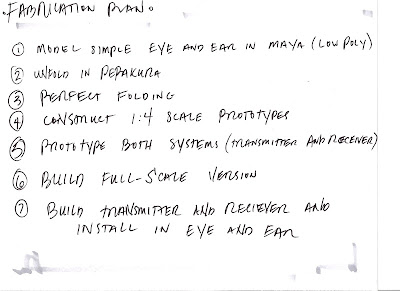 . FABRICATION PLAN.
① MODEL SIMPLE EYE AND EAR IN MAYA (LOW POLY)
② UNFOLD IN PEPAKURA
③ PERFECT FOLDING
④ CONSTRUCT 1:4 SCALE PROTOTYPES
⑤ PROTOTYPE BOTH SYSTEMS (TRANSMITTER AND RECEIVER)
⑥ BUILD FULL-SCALE VERSION
⑦ BUILD TRANSMITTER AND RECIEVER AND
INSTALL IN EYE AND EAR